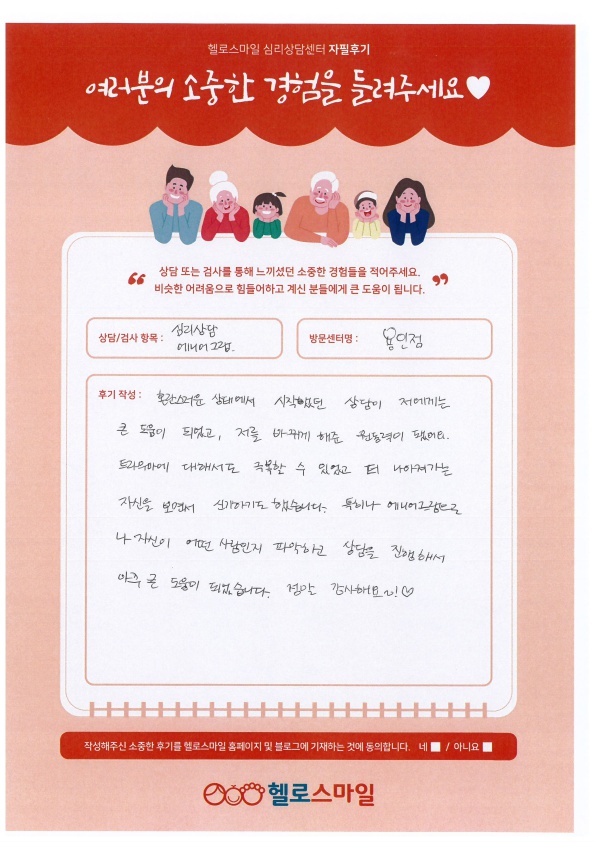 헬로스마일 심리상담센터 자필후기
여러분의 소중한 경험을 들려주세요♥
“ 상담 또는 검사를 통해 느끼셨던 소중한 경험들을 적어주세요.
비슷한 어려움으로 힘들어하고 계신 분들에게 큰 도움이 됩니다. ”
상담/검사 항목 : 심리상담
에니어그램.
방문센터명 : 용인점
후기 작성 : 혼란스러운 상태에서 시작했던 상담이 저에게는
큰 도움이 되었고, 저를 바꾸게 해준 원동력이 됐어요.
트라우마에 대해서도 극복할 수 있었고 더 나아져가는
자신을 보면서 신기하기도 했습니다. 특히나 에니어그램으로
나 자신이 어떤 사람인지 파악하고 상담을 진행해서
아주 큰 도움이 되었습니다. 정말 감사해요~!♡
작성해주신 소중한 후기를 헬로스마일 홈페이지 및 블로그에 기재하는 것에 동의합니다. 네 ■ / 아니요 ■
헬로스마일